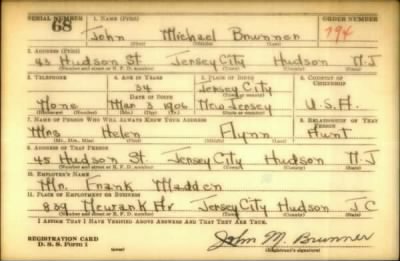 SERIAL NUMBER 1. NAME (Print) ORDER NUMBER
68 John Michael Brunner 794
(First) (Middle) (Last)
2. ADDRESS (Print)
43 Hudson St. Jersey City Hudson N.J
(Number and street or R. F. D. number) (Town) (County) (State)
3. TELEPHONE 4. AGE IN YEARS 5. PLACE OF BIRTH 6. COUNTRY OF CITIZENSHIP
34 Jersey City
DATE OF BIRTH (Town or county)
None Mar 3 1906 New Jersey U.S.A.
(Exchange) (Number) (Mo.) (Day) (Yr.) (State or country)
7. NAME OF PERSON WHO WILL ALWAYS KNOW YOUR ADDRESS 8. RELATIONSHIP OF THAT PERSON
Mrs Helen Flynn Aunt
(Mr., Mrs., Miss) (First) (Middle) (Last)
9. ADDRESS OF THAT PERSON
45 Hudson St. Jersey City Hudson N.J
(Number and street or R. F. D. number) (Town) (County) (State)
10. EMPLOYER'S NAME
Mr. Frank Madden
11. PLACE OF EMPLOYMENT OR BUSINESS
839 Newark Av Jersey City Hudson J.C
(Number and street or R. F. D. number) (Town) (County) (State)
I AFFIRM THAT I HAVE VERIFIED ABOVE ANSWERS AND THAT THEY ARE TRUE.
REGISTRATION CARD John M. Brunner
D. S. S. Form 1 (over) (Registrant's signature)